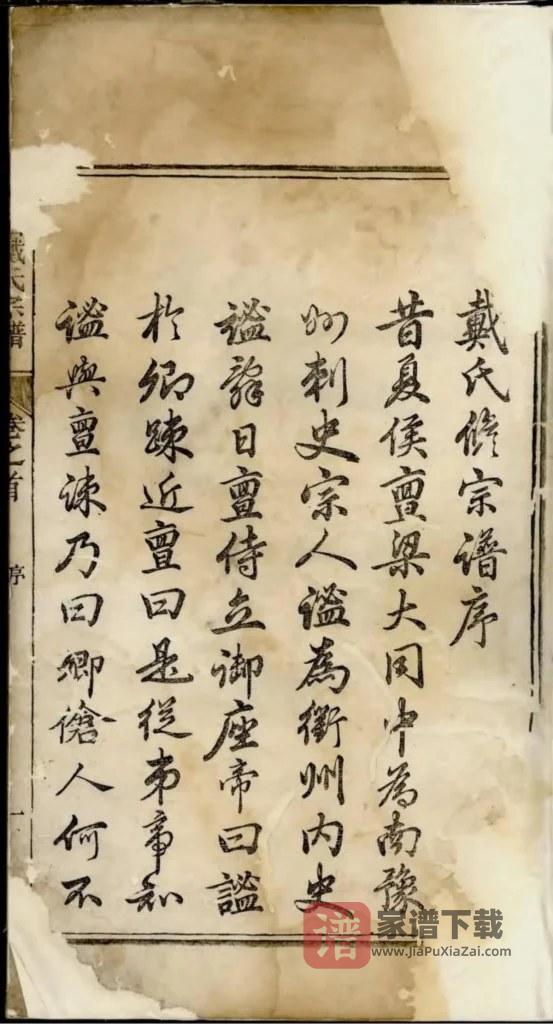 戴氏修宗譜序
昔夏侯亶梁大同中為南豫
州刺史宗人謐為衡州内史
謐辭日亶侍立御座帝曰謐
於卿踈近亶曰是從弟帝知
謐與亶踈乃曰卿傖人何不
戴氏宗譜
卷之首
序
一
谱
家谱下载
www.JiaPuXiaZai.com